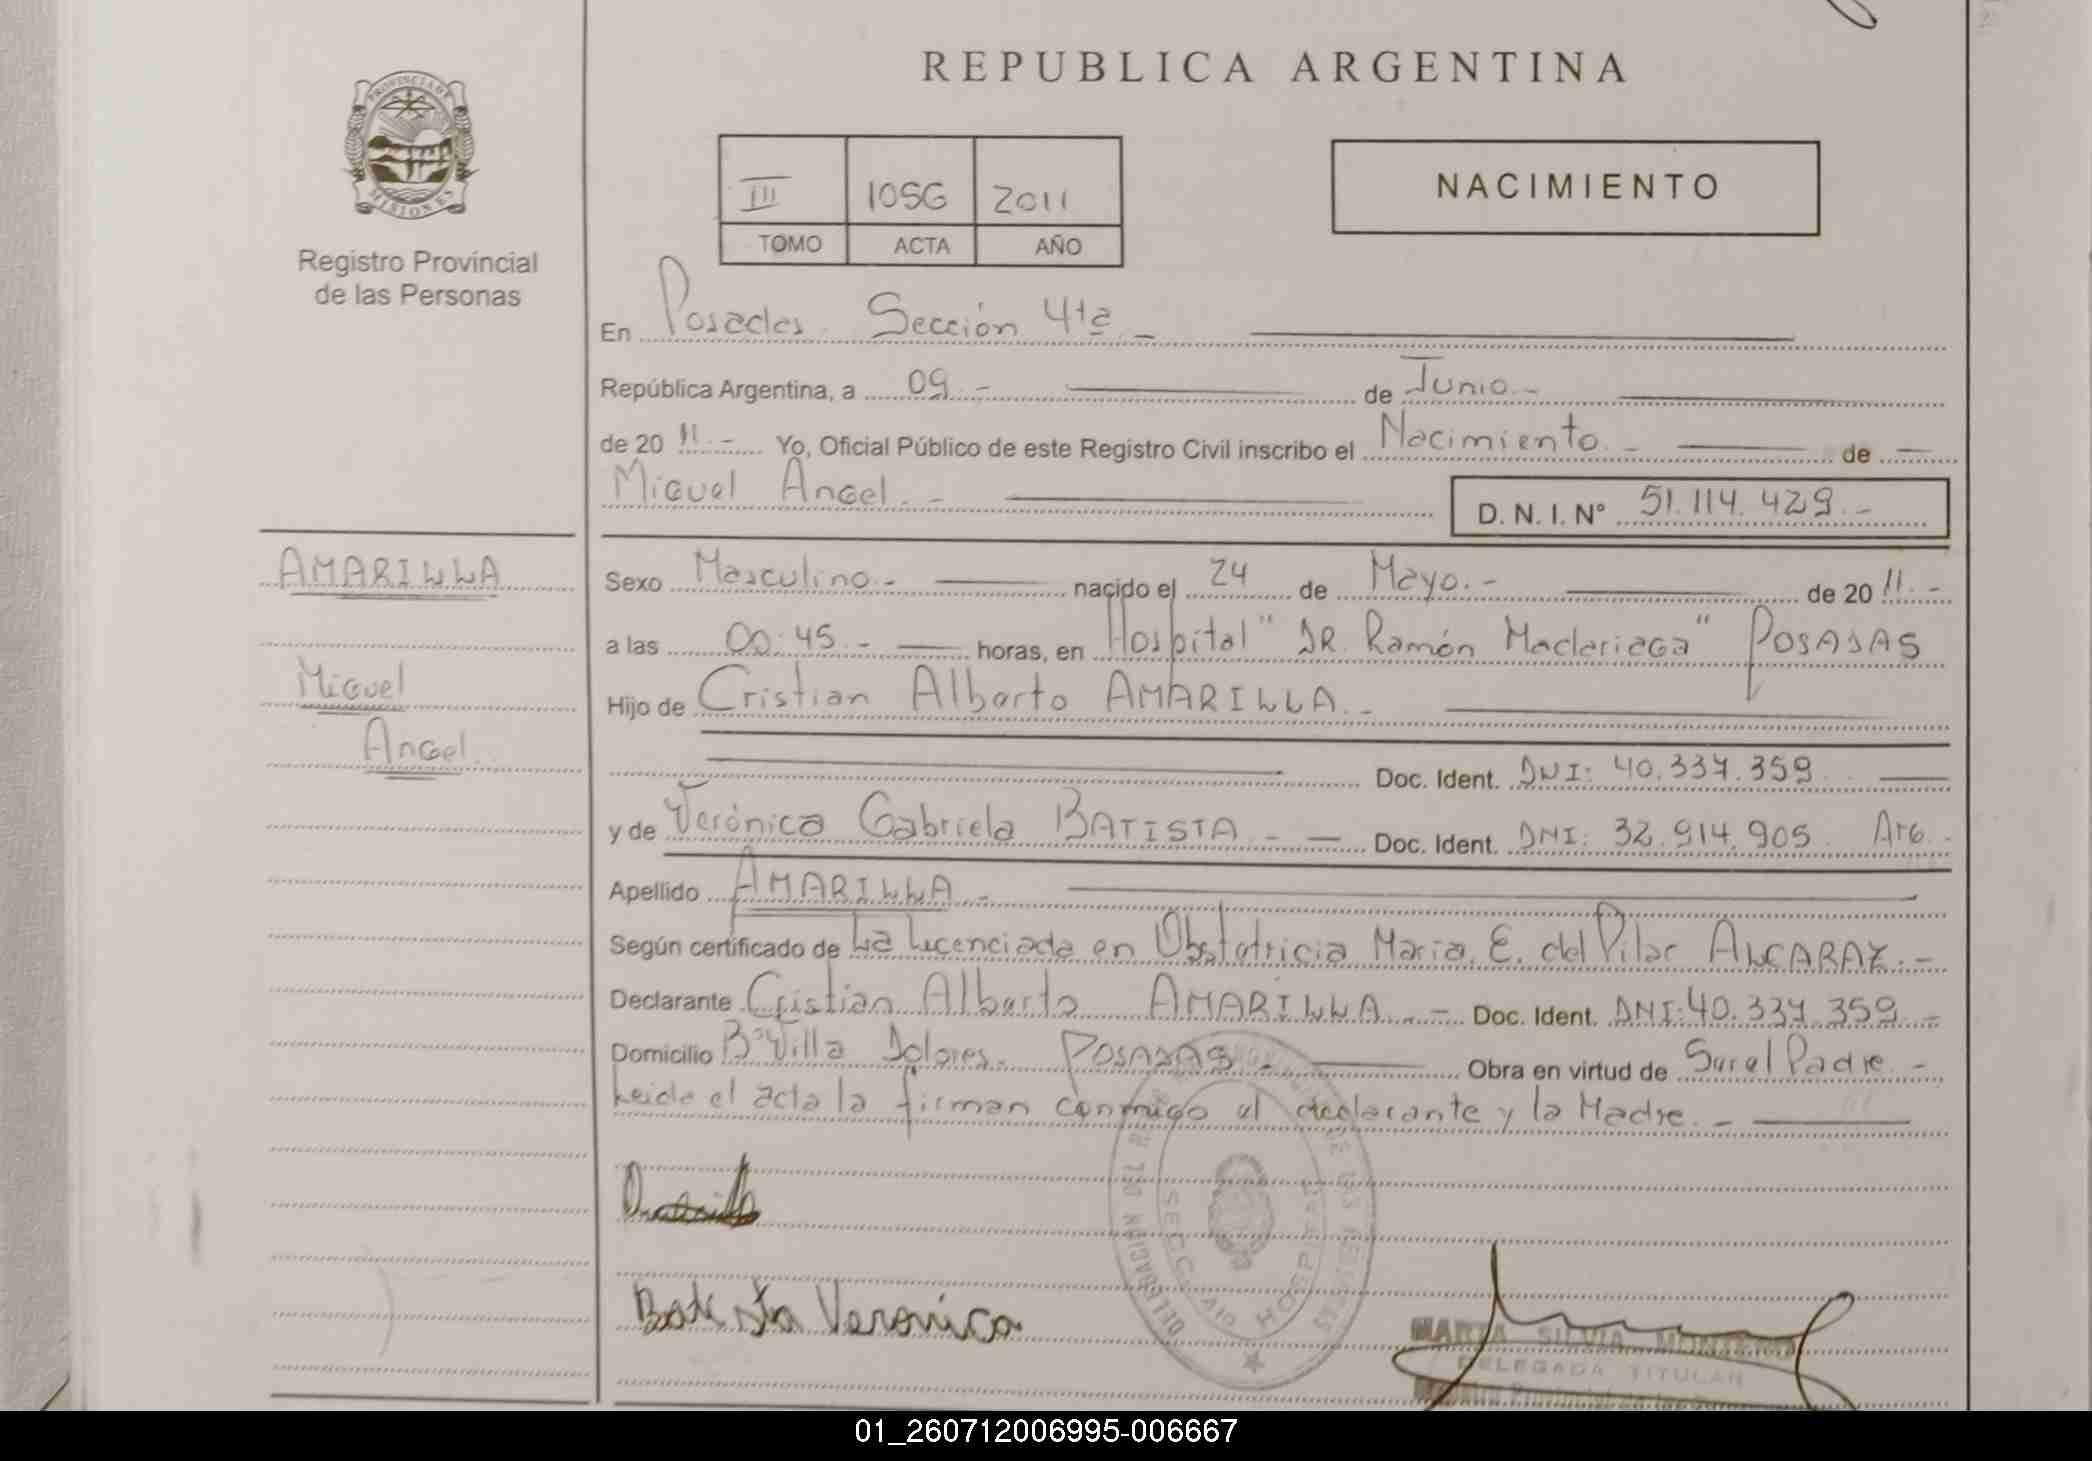 REPUBLICA ARGENTINA
PROVINCIA DE
MISIONES
Registro Provincial
de las Personas
III 1056 2011
TOMO ACTA AÑO
NACIMIENTO
En Posadas. Sección 4ta.-
República Argentina, a 09.- de Junio.-
de 20 11.- Yo, Oficial Público de este Registro Civil inscribo el Nacimiento.- de
Miguel Angel.-
D. N. I. Nº 51.114.429.-
AMARILLA
Miguel
Angel.
Sexo Masculino.- nacido el 24 de Mayo.- de 20 11.-
a las 00:45.- horas, en Hospital "DR. Ramón Madariaga" POSADAS
Hijo de Cristian Alberto AMARILLA.-
Doc. Ident. DNI: 40.337.359
y de Verónica Gabriela BATISTA.- Doc. Ident. DNI: 32.914.905. Arg.
Apellido AMARILLA.-
Según certificado de La Licenciada en Obstetricia Maria. E. del Pilar ALCARAZ.-
Declarante Cristian Alberto AMARILLA.- Doc. Ident. DNI: 40.337.359.-
Domicilio Bº Villa Dolores. POSADAS.- Obra en virtud de Ser el Padre.-
Leida el acta la firman conmigo el declarante y la Madre.-
Batista Veronica
MARTA SILVIA
DELEGADA TITULAR
01_260712006995-006667